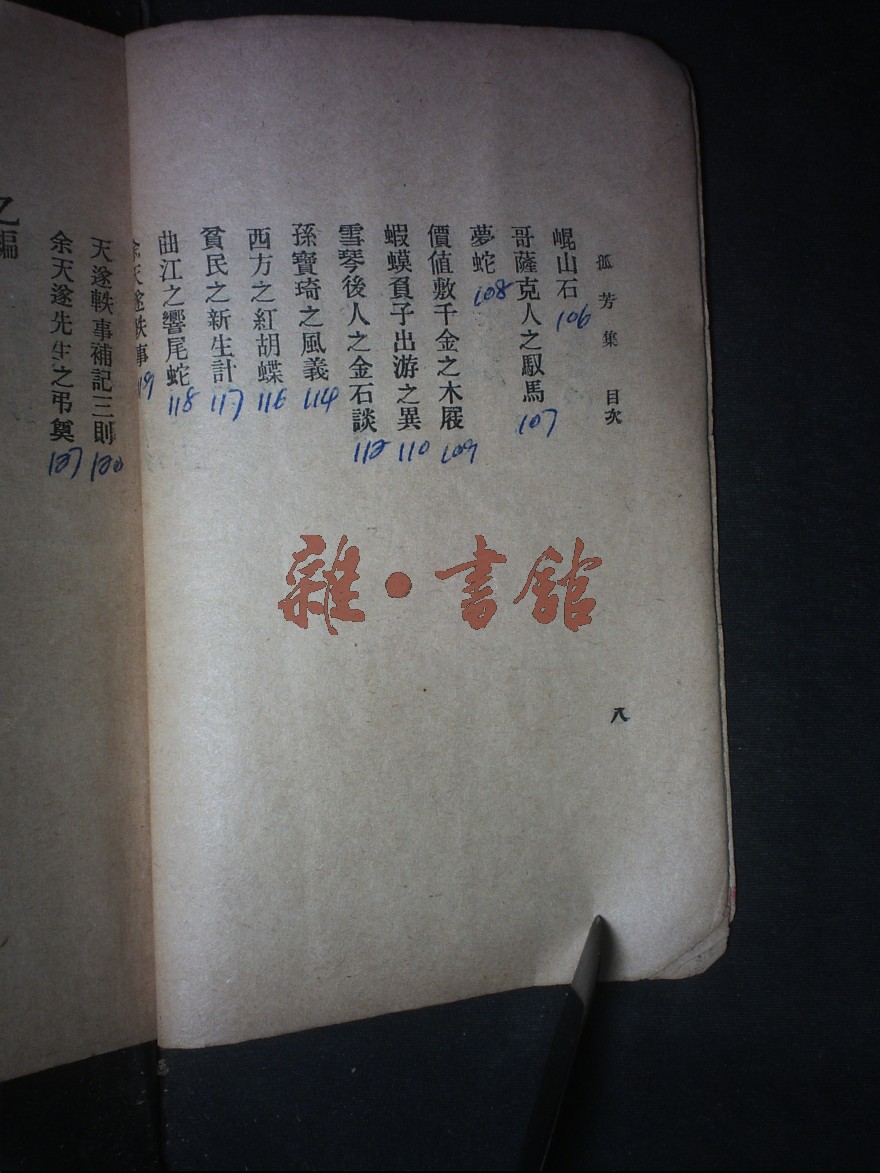 孤芳集 目次
崐山石 106
哥薩克人之馭馬 107
夢蛇 108
價值數千金之木屐 109
蝦蟆負子出游之異 110
雪琴後人之金石談 112
孫寶琦之風義 114
西方之紅胡蝶 116
貧民之新生計 117
曲江之響尾蛇 118
余天遂軼事 119
天遂軼事補記三則 120
余天遂先生之弔奠 127
乙編
八
雜·書館